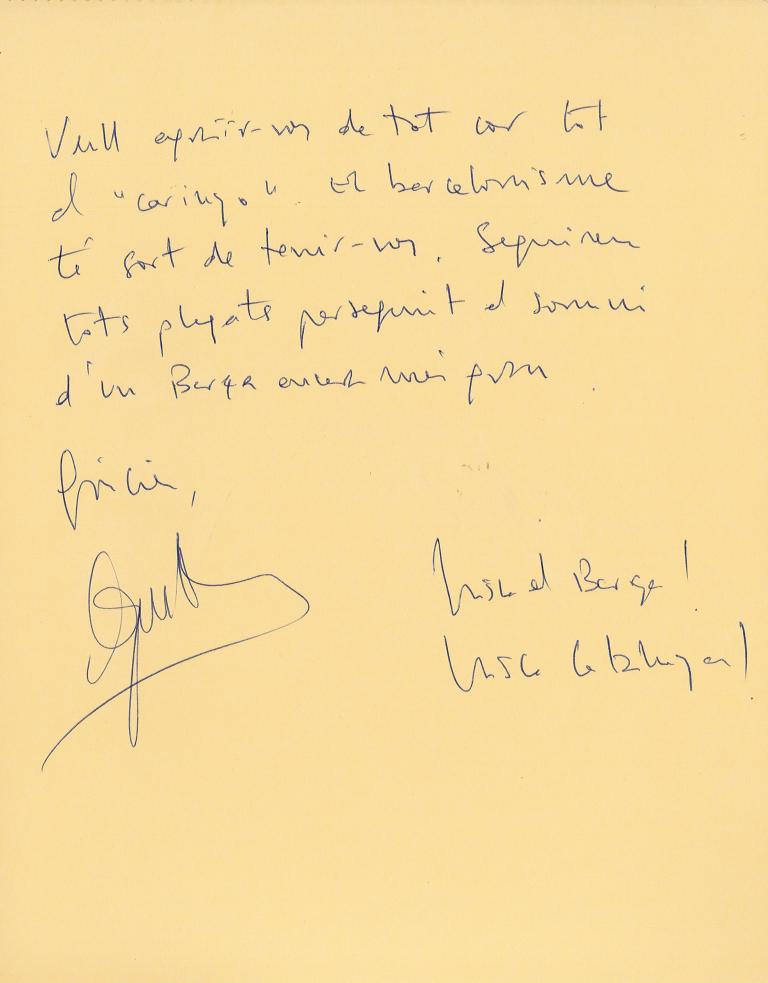 Vull agrair-vos de tot cor tot
el "carinyo". El barcelonisme
té sort de tenir-vos. Seguirem
tots plegats perseguint el somni
d'un Barça encara més gran.
Gràcies,
Visca el Barça!
Visca Catalunya!